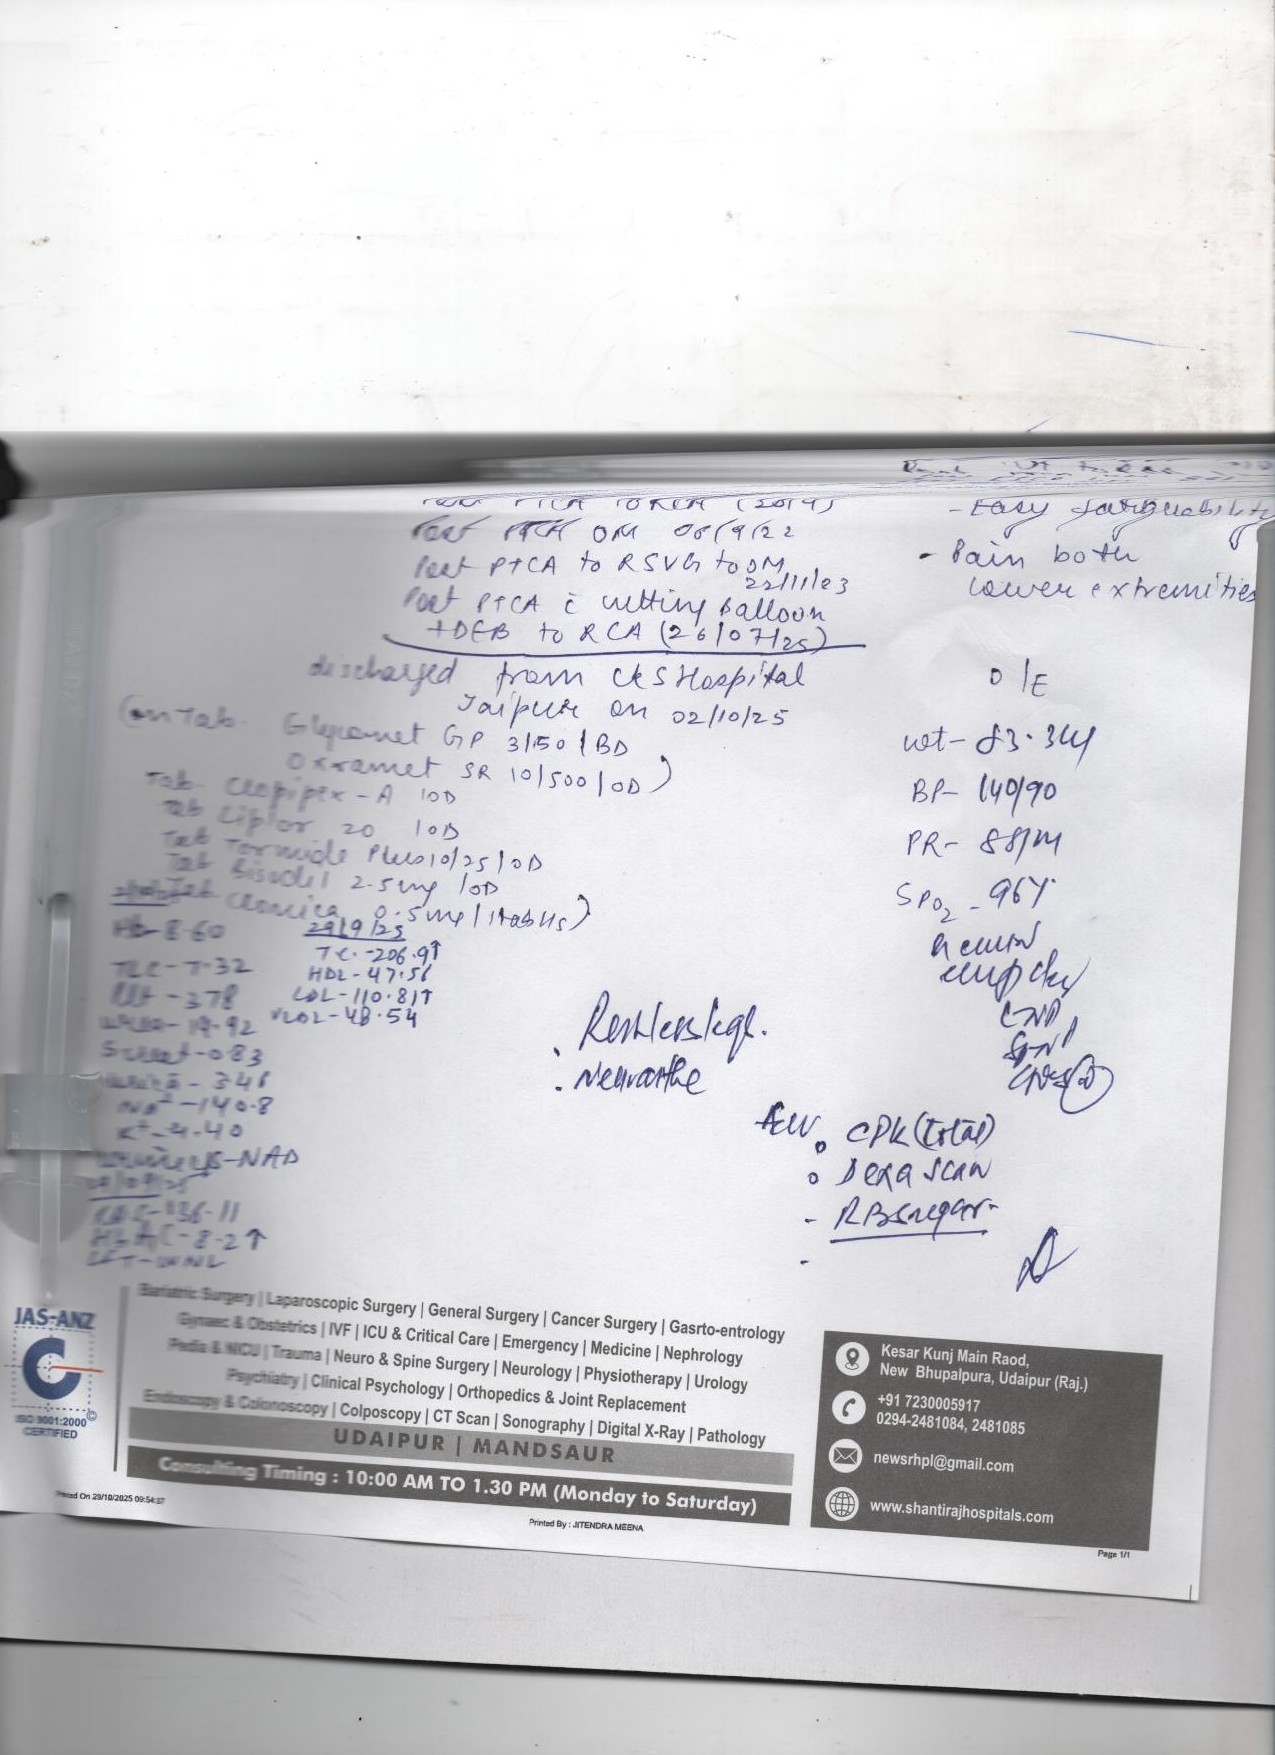 PTCA to RCA (2019)
Post PTCA OM 06/9/22
Post PTCA to RSVG to OM
22/11/23
Post PTCA c cutting Balloon
+ DEB to RCA (26/07/25)
discharged from CKS Hospital
Jaipur on 02/10/25
(on Tab. Glycomet GP 3/50 1BD
Oxramet SR 10/500 1OD)
Tab. Clopipex-A 1OD
Tab Liplor 20 1OD
Tab Tormide Plus 10/25 1OD
Tab 2.5mg 1OD
Tab 0.5mg 1tab HS)
Hb-8.60
TLC-7.32
PLT-378
19.92
S. creat-0.83
3.46
Na+-140.8
K+-4.40
NAD
136.11
HbA1C-8.2↑
LFT-WNL
29/9/25
TC.-206.9↑
HDL-47.56
LDL-110.81↑
VLDL-48.54
- Easy fatiguability
- Pain both
lower extremities
O/E
wt-83.3
BP-140/90
PR-88/M
SPO2-96%
. Restless legs.
.
Adv. CPK (total)
Dexa scan
- RBsugar-
JAS-ANZ
ISO 9001:2000
CERTIFIED
Bariatric Surgery | Laparoscopic Surgery | General Surgery | Cancer Surgery | Gasrto-entrology
Gynaec & Obstetrics | IVF | ICU & Critical Care | Emergency | Medicine | Nephrology
Pedia & NICU | Trauma | Neuro & Spine Surgery | Neurology | Physiotherapy | Urology
Psychiatry | Clinical Psychology | Orthopedics & Joint Replacement
Endoscopy & Colonoscopy | Colposcopy | CT Scan | Sonography | Digital X-Ray | Pathology
UDAIPUR | MANDSAUR
Consulting Timing : 10:00 AM TO 1.30 PM (Monday to Saturday)
Kesar Kunj Main Raod,
New Bhupalpura, Udaipur (Raj.)
+91 7230005917
0294-2481084, 2481085
newsrhpl@gmail.com
www.shantirajhospitals.com
Printed On 29/10/2025 09:54:37
Printed By : JITENDRA MEENA
Page 1/1